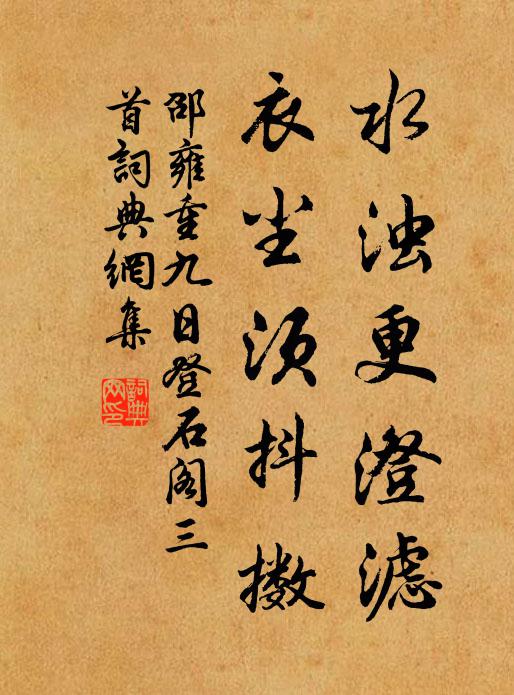 水浊更澄滤
衣尘须抖擞
邵雍重九日登石阁三
首詞典網集
詞典網印